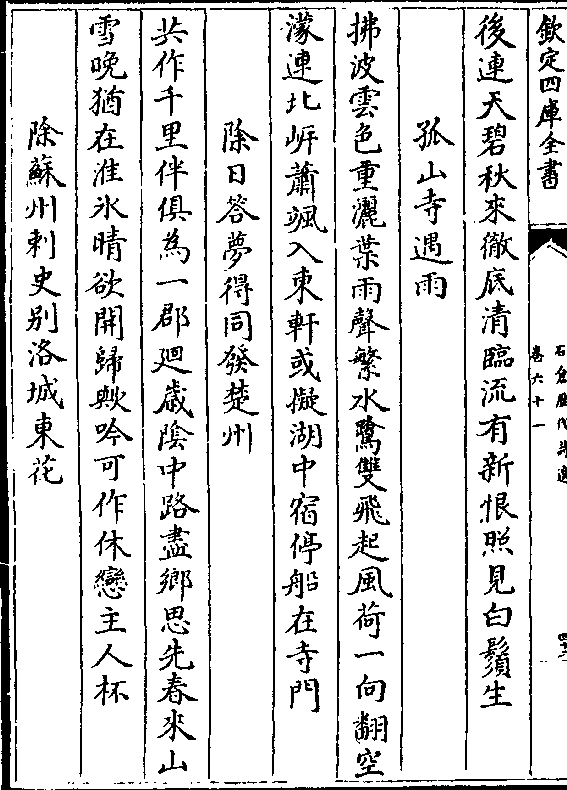 欽定四庫全書
石倉歷代詩選
卷六十一
後連天碧秋來徹底清臨流有新恨照見白鬚生
孤山寺遇雨
拂波雲色重灑葉雨聲繁水鷺雙飛起風荷一向翻空
濛連北㟁蕭颯入東軒或擬湖中宿停船在寺門
除日答夢得同發楚州
共作千里伴俱為一郡廻歲陰中路盡鄉思先春來山
雪晚猶在淮氷晴欲開歸歟吟可作休戀主人杯
除蘇州刺史别洛城東花